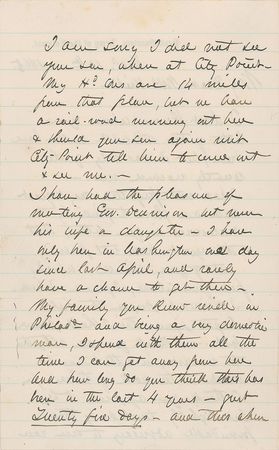 I am sorry I did not see
your son, when at City Point.
My Hd Qrs are 14 miles
from that place, but we have
a rail-road running out here
& should your son again visit
City Point tell him to come out
& see me.—
I have had the pleasure of
meeting Gov. Dennison but never
his wife & daughter - I have
only been in Washington one day
since last April, and rarely
have a chance to get there.-
My family you know reside in
Philada and being a very domestic
man, I spend with them all the
time I can get away from here
and how long do you think this has
been in the last 4 years - just
Twenty five days - and this when